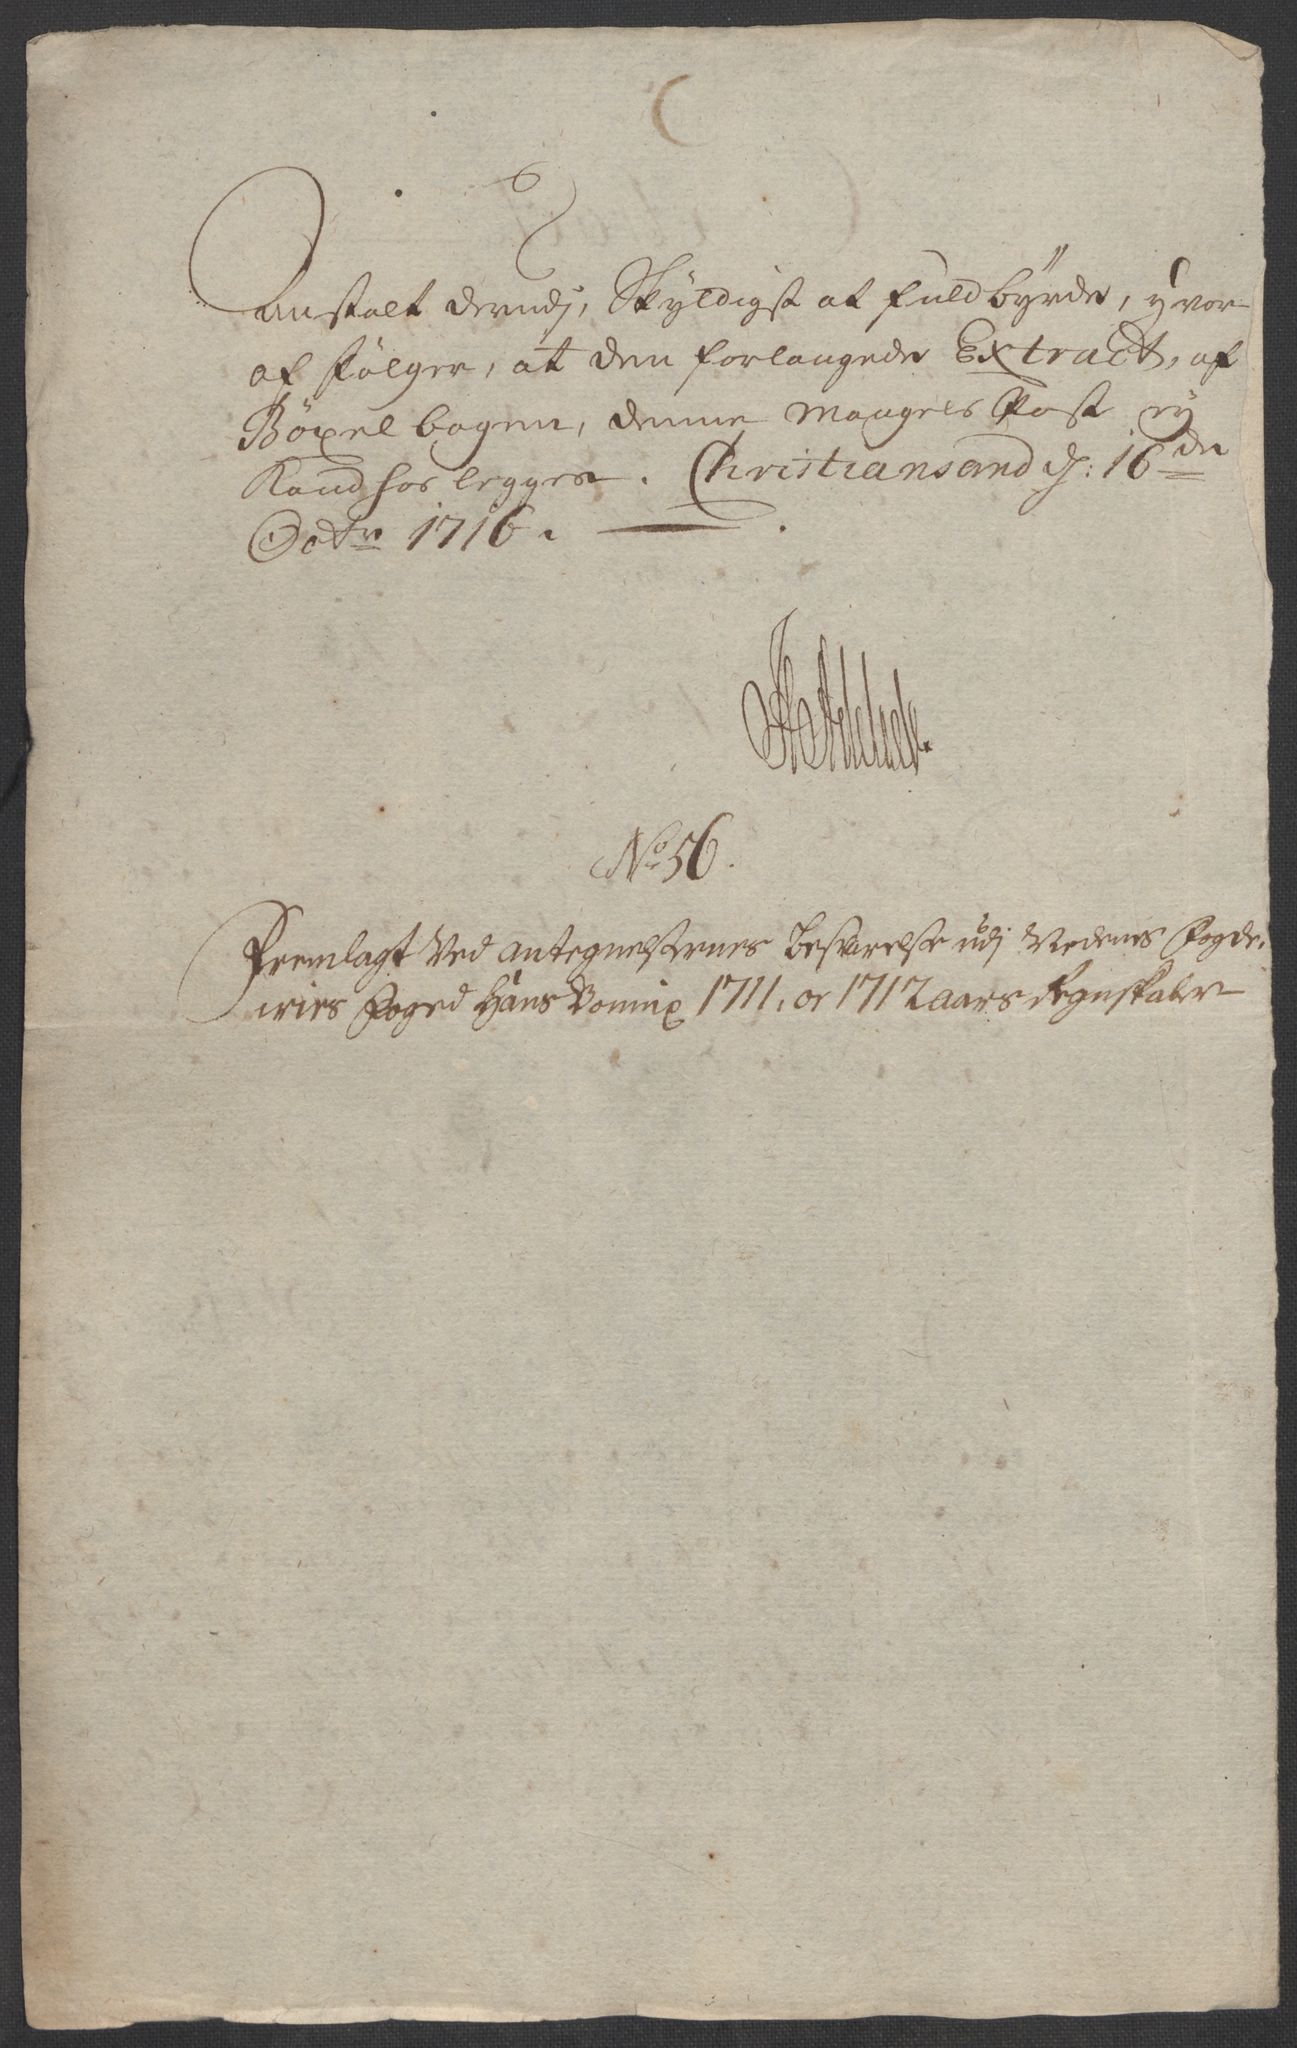 Anstalt derudj, Skÿldigst at fuldbÿrde, hvor
af følger, at den forlangede Extract, af
Bøxelbogen, denne Mangels Post eÿ
Kand hos legges. Christiansand d: 16de
Octr 1716.
No 56.
Fremlagt Ved Antegnelsernes besvarelse udj Nedenes Fogde-
ries Foged Hans 1711. oc 1712 aars Regnskaber